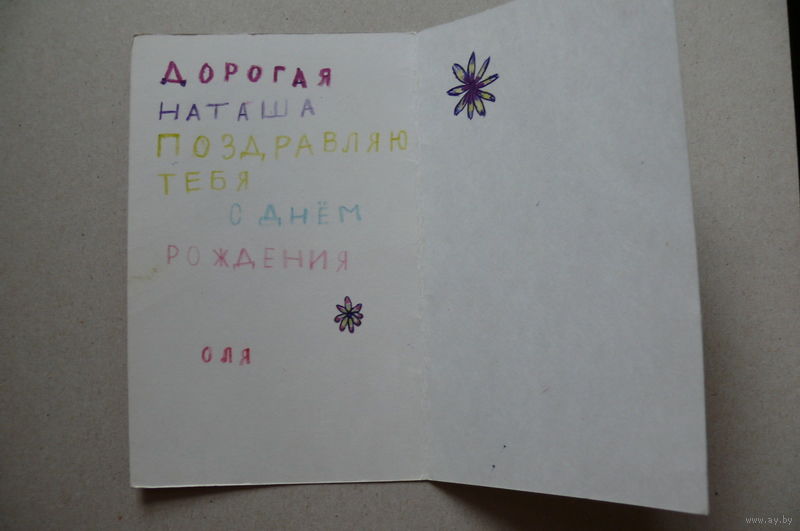 ДОРОГАЯ
НАТАША
ПОЗДРАВЛЯЮ
ТЕБЯ
С ДНЁМ
РОЖДЕНИЯ
ОЛЯ
www.ay.by